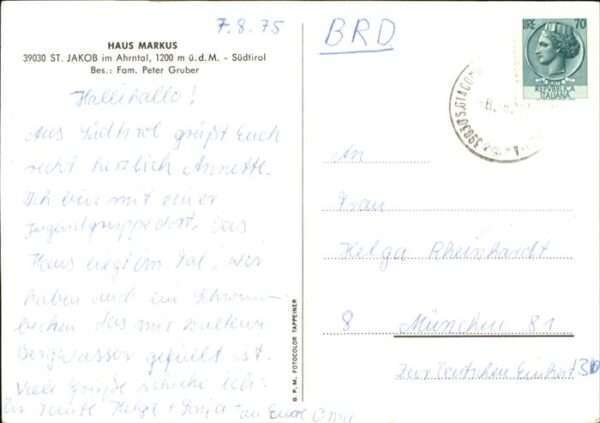 7.8.75
HAUS MARKUS
39030 ST. JAKOB im Ahrntal, 1200 m ü.d.M. - Südtirol
Bes.: Fam. Peter Gruber
Hallihallo!
Aus Südtirol grüßt Euch
recht herzlich Annette.
Ich bin mit einer
Jugendgruppe dort. Das
Haus liegt im Tal, wir
haben auch ein Schwimm-
becken das mit kaltem
Bergwasser gefüllt ist.
Viele Grüße schicke ich
Tante Helga + an Eure
G. P. M. FOTOCOLOR TAPPEINER
BRD
LIRE 70
REPUBBLICA
ITALIANA
39030 S. GIACOMO
An
Frau
Helga Rheinhardt
8 München 81
Zur Deutschen Einheit 30